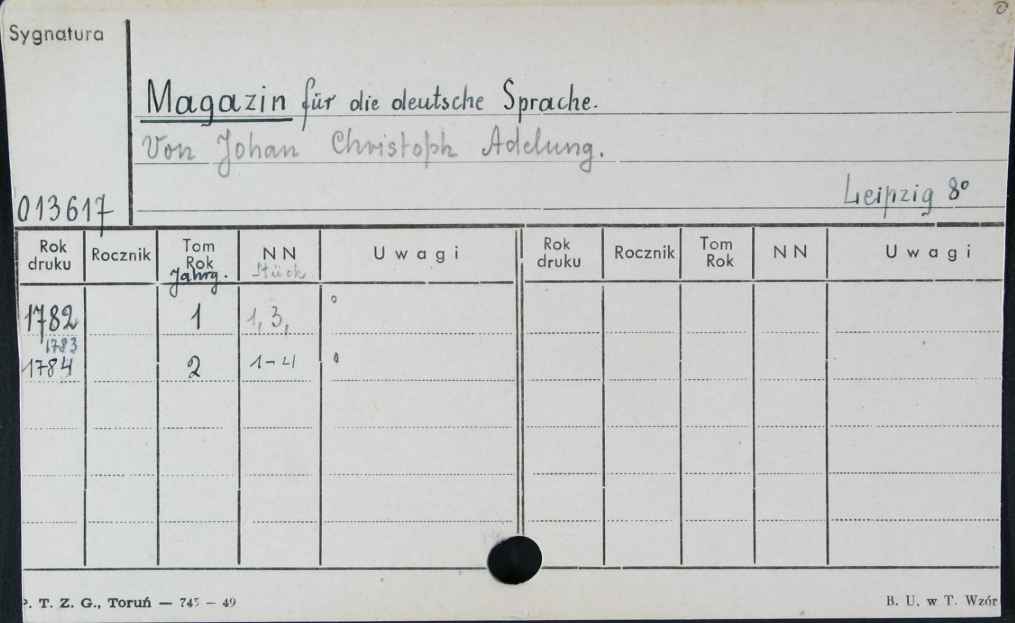 Sygnatura
Magazin für die deutsche Sprache.
Von Johan Christoph Adelung.
Leipzig 8°
013617
Rok druku Rocznik Tom Rok Jahrg. NN Stück Uwagi Rok druku Rocznik Tom Rok NN Uwagi
1782 1 1, 3,
1783
1784 2 1-4
P. T. Z. G., Toruń — 745 — 49 B. U. w T. Wzór